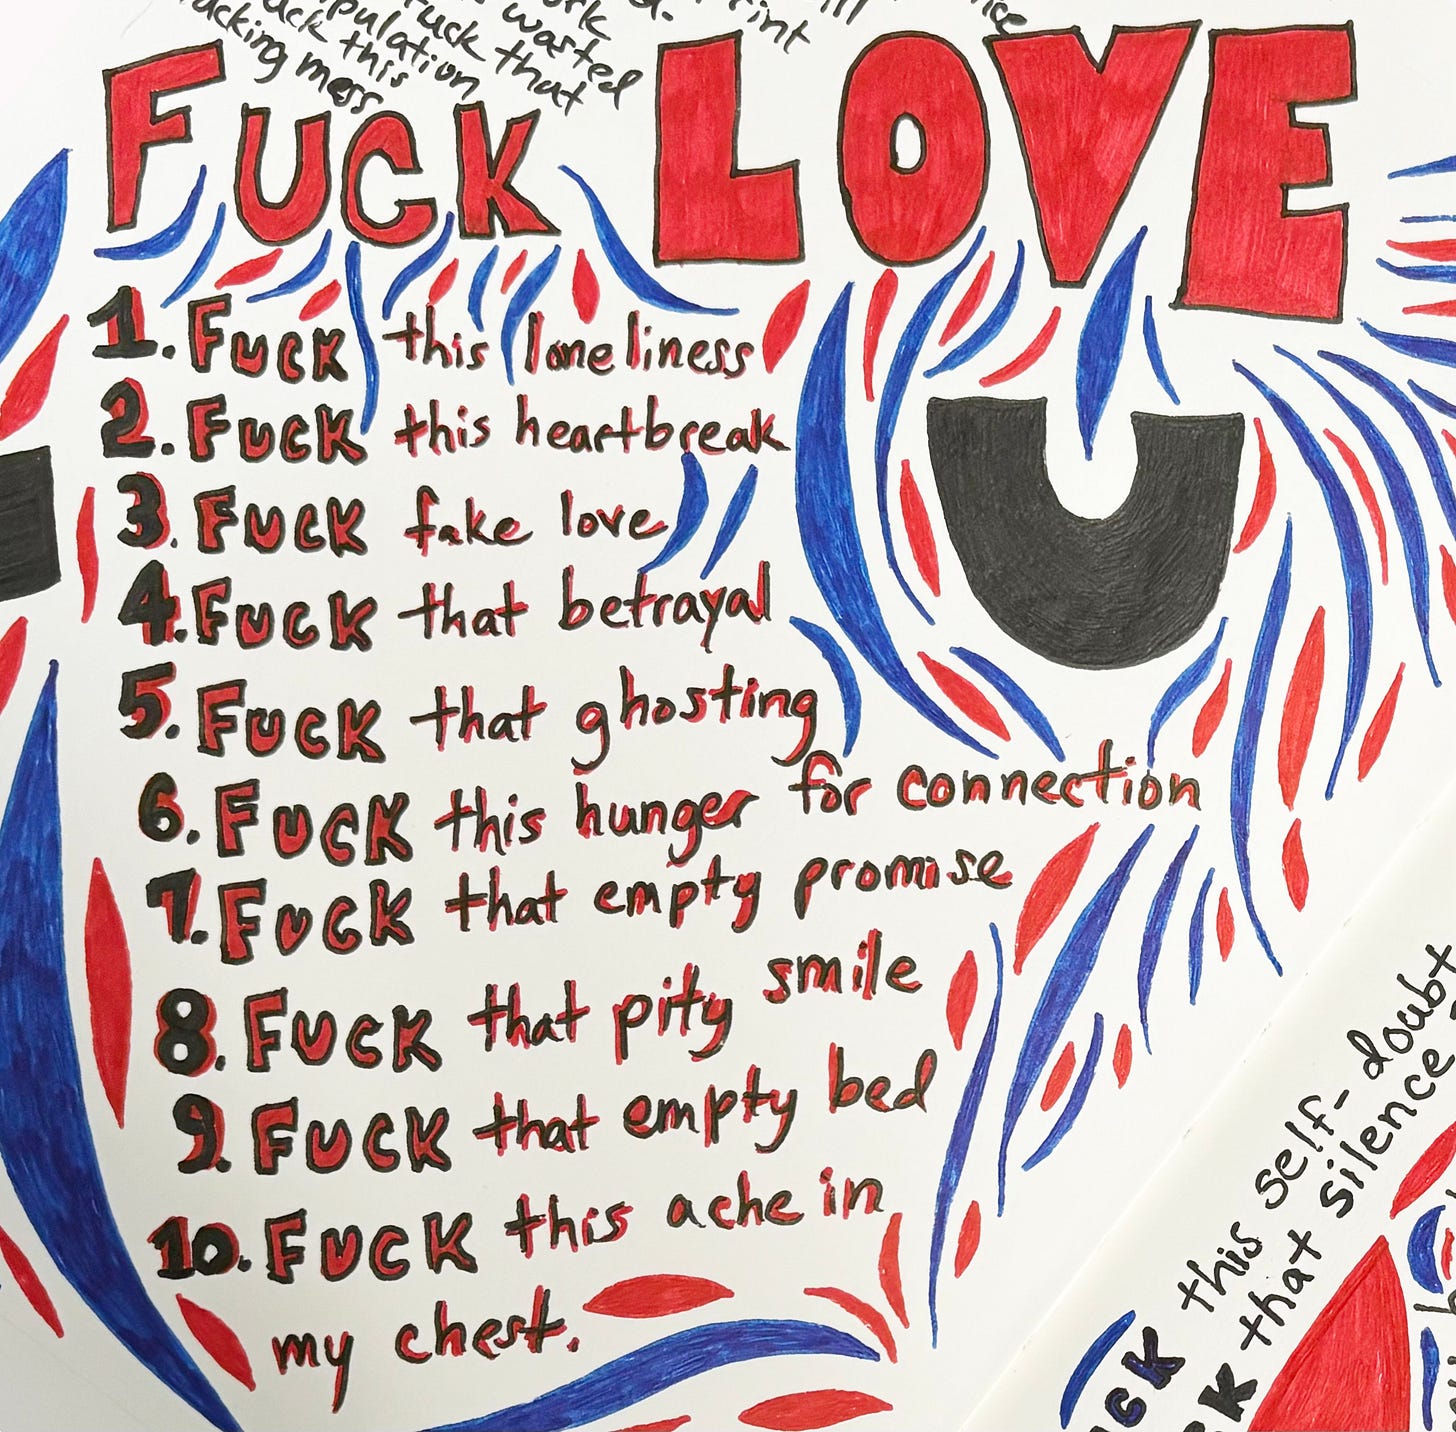 wasted
fuck that
pulation
fuck this
fucking mess
FUCK LOVE
1. FUCK this loneliness
2. FUCK this heartbreak
3. FUCK fake love
4. FUCK that betrayal
5. FUCK that ghosting
6. FUCK this hunger for connection
7. FUCK that empty promise
8. FUCK that pity smile
9. FUCK that empty bed
10. FUCK this ache in
my chest.
U
this self-doubt
that silence